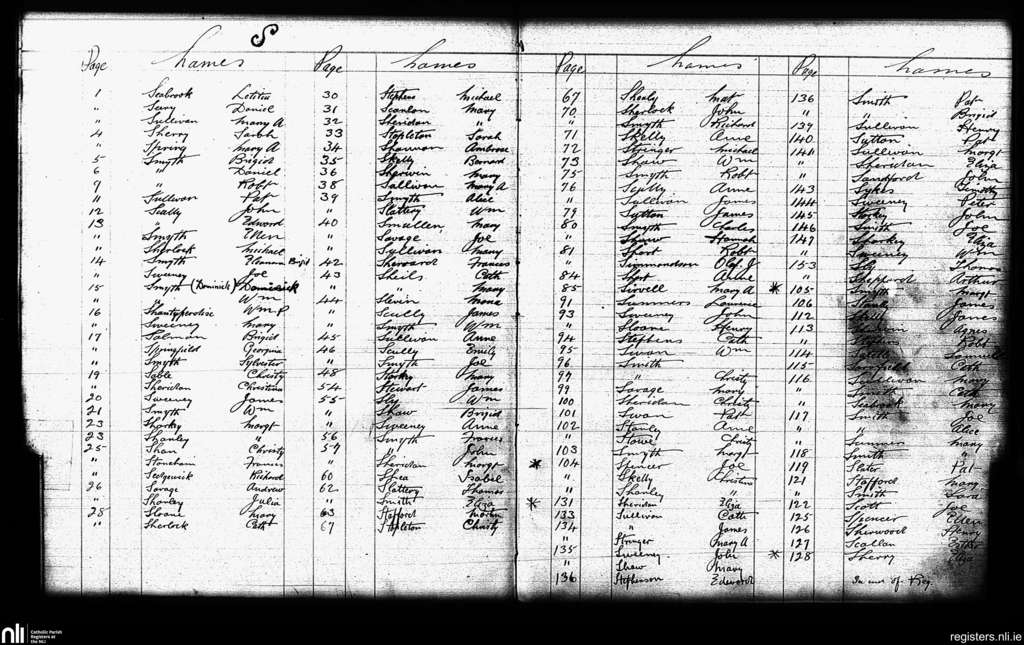 S
Page Names Page Names
1 Seabrook Letitia
" Seery Daniel
" Sullivan Mary A
4 Sherry Sarah
" Spring Mary A
5 Smyth Brigid
6 " Daniel
7 " Robt
" Sullivan Pat
12 Scally John
13 " Edward
" Smyth Ellen
" Sherlock Michael
14 Smyth Eleanor Brigid
" Sweeney Joe
15 Smyth (Dominick) Dominick
" " Wm
16 Wm P
" Sweeney Mary
17 Salmon Brigid
" Springfield Georgina
" Smyth Sylvester
19 Sable Christy
" Sheridan Christina
20 Sweeney James
21 Smyth Wm
23 Sharkey Margt
23 Shanley "
25 Shan Christy
" Stoneham Frances
" Sedgewick Richard
26 Savage Andrew
" Shanley Julia
28 Sloane Mary
" Sherlock Cath
30 Stephens Michael
31 Scanlon Mary
32 Sheridan "
33 Stapleton Sarah
34 Shannon Ambrose
35 Skelly Bernard
36 Sherwin Mary
38 Sullivan Mary A
39 Smyth Alice
" Slattery Wm
40 Smullen Mary
" Savage Joe
" Sullivan Mary
42 Sherrard Frances
43 Sheils Cath
" " Mary
44 Slevin Mona
" Scully James
" Smyth Wm
45 Sullivan Anne
46 Scully Emily
" Smyth Joe
48 Starkey Mary
54 Stewart James
55 Sly Wm
" Shaw Brigid
" Sweeney Anne
56 Smyth Frances
57 " John
" Sheridan Margt
60 Shea Isabel
62 Slattery Thomas
" Smith Eliza
63 Stafford Martin
67 Stapleton Christy
Page Names Page Names
67 Shealy Mat
70 Sherlock John
" Smyth Richard
71 Skelly Anne
72 Stringer Michael
73 Shaw Wm
75 Smyth Robt
76 Scully Anne
" Sullivan James
79 Sutton James
80 Smyth Charles
" Shaw Hannah
81 Short Robt
" Simmondson Olaf J
84 Short Annie
85 Sirrell Mary A
91 Summers Laurence
93 Sweeney John
" Sloane Henry
94 Stephens Cath
95 Swan Wm
96 Smith "
97 " Christy
99 Savage Mary
100 Sheridan Christy
101 Swan Pat
102 Stanley Anne
" Stowe Christy
103 Smyth Margt
* 104 Spencer Joe
" Skelly Christina
" Shanley "
* 131 Sheridan Eliza
133 Sullivan Cath
134 " James
" Stringer Mary A
135 Sweeney John
" Shaw Mary
136 Stephenson Edward
136 Smith Pat
" " Brigid
139 Sullivan Henry
140 Sutton Pat
141 Sullivan Margt
" Sheridan Eliza
" Sandford John
143 Sykes Timothy
144 Sweeney Peter
145 Starkey John
146 Smith Joe
147 Sharkey Eliza
" Sweeney Wm
153 Sly Thomas
" Sheppard Arthur
* 105 Smyth Margt
106 James
112 Skelly James
113 Agnes
" Robt
114 Samuel
115 Cath
116 Sullivan Mary
" Cath
" Mary
117 Smith Joe
" Alice
" Summers Mary
118 Smith "
119 Slater Pat
121 Stafford Mary
" Smith Sara
122 Scott Joe
125 Spencer Ellen
126 Sherwood Henry
127 Scallan Esther
* 128 Sherry Eliza
nli Catholic Parish
Registers at
the NLI
registers.nli.ie